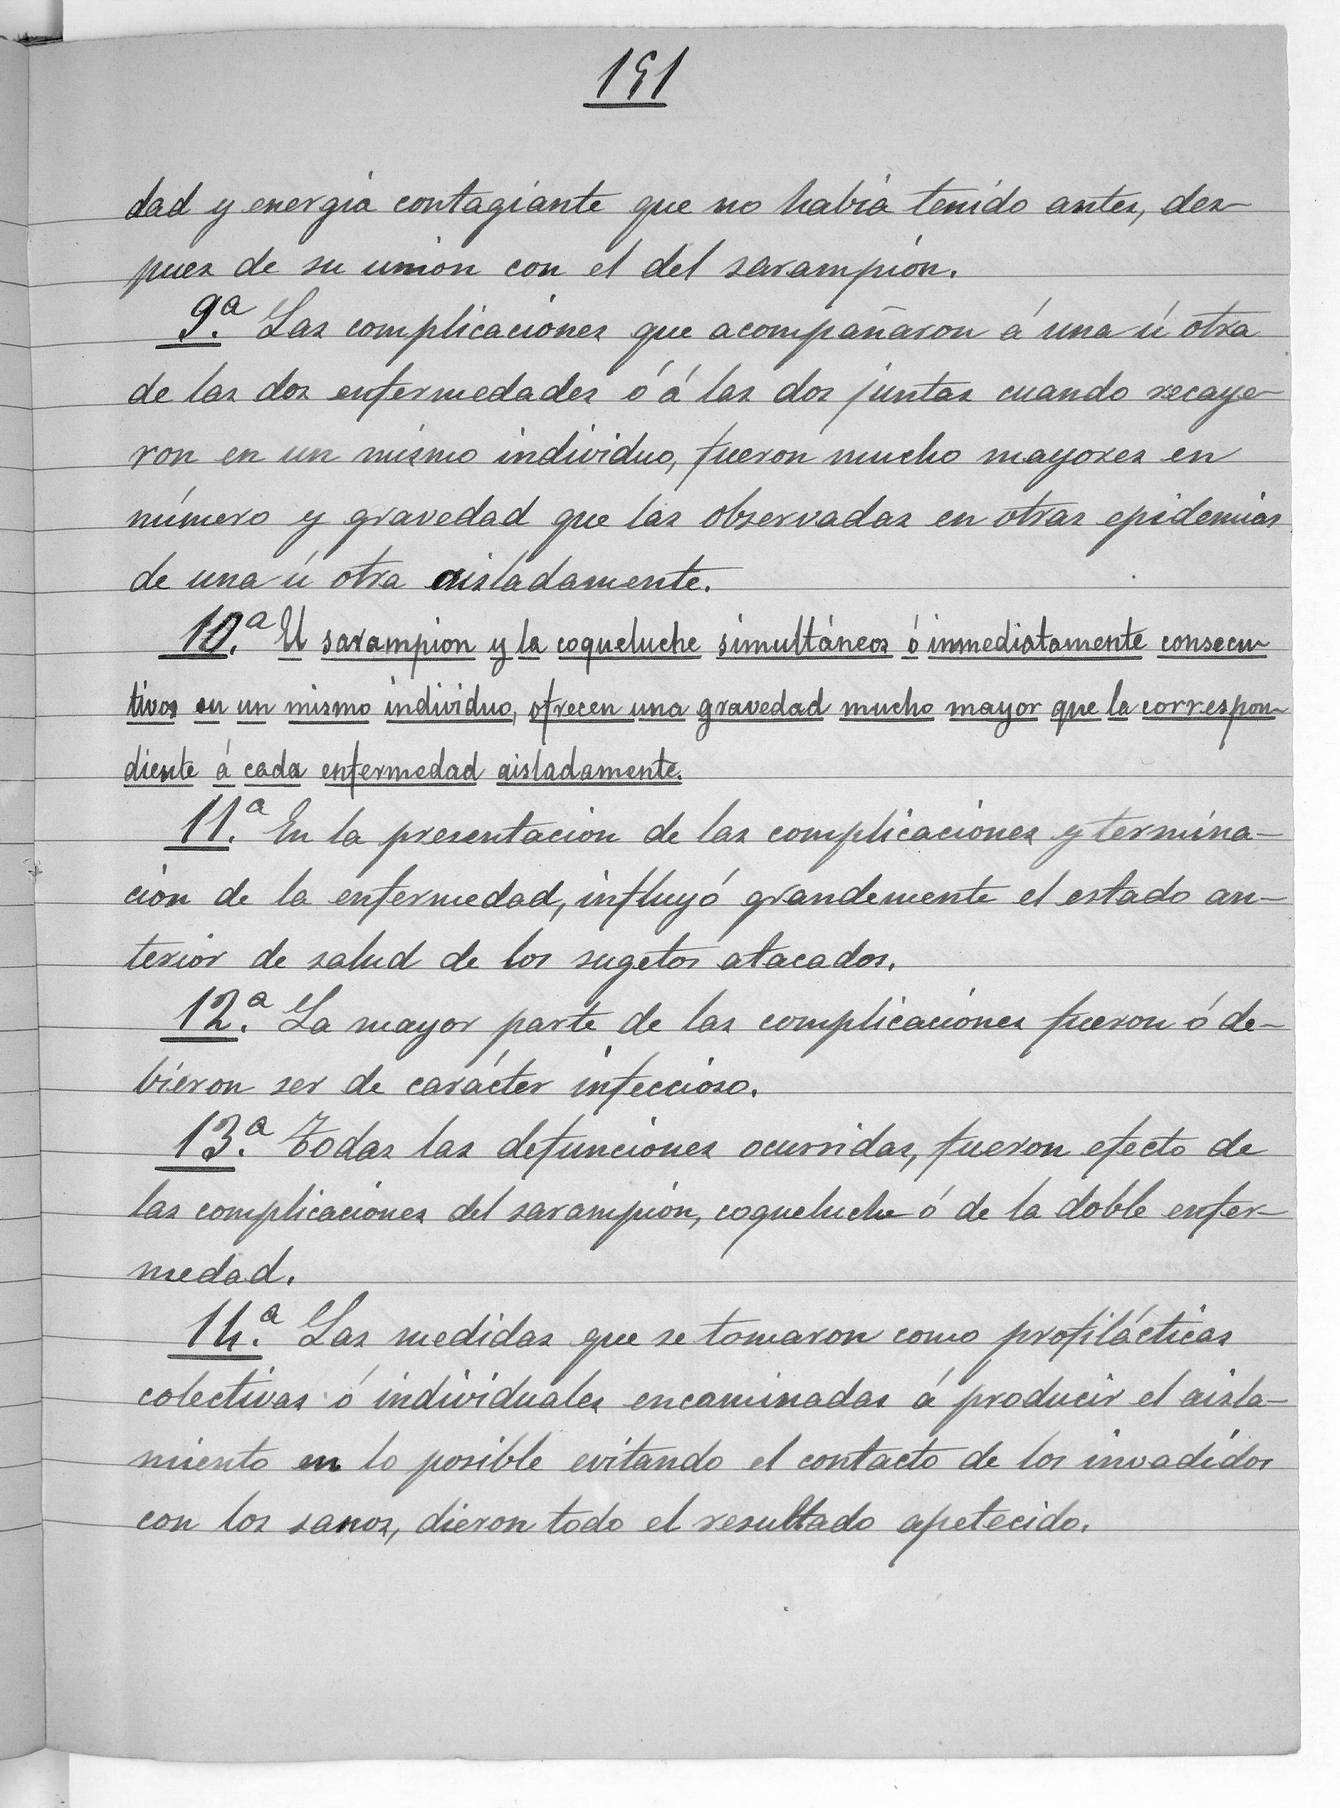 191
dad y energia contagiante que no habia tenido antes, des-
pues de su union con el del sarampión.
9.ª Las complicaciones que acompañaron á una ú otra
de las dos enfermedades ó á las dos juntas cuando recaye-
ron en un mismo individuo, fueron mucho mayores en
número y gravedad que las observadas en otras epidemias
de una ú otra aisladamente.
10.ª El sarampion y la coqueluche simultáneos ó inmediatamente consecu-
tivos en un mismo individuo, ofrecen una gravedad mucho mayor que la correspon-
diente á cada enfermedad aisladamente.
11.ª En la presentacion de las complicaciones y termina-
ción de la enfermedad, influyó grandemente el estado an-
terior de salud de los sugetos atacados.
12.ª La mayor parte de las complicaciones fueron ó de-
bieron ser de carácter infeccioso.
13.ª Todas las defunciones ocurridas, fueron efecto de
las complicaciones del sarampión, coqueluche ó de la doble enfer-
medad.
14.ª Las medidas que se tomaron como profilácticas
colectivas ó individuales encaminadas á producir el aisla-
miento en lo posible evitando el contacto de los invadidos
con los sanos, dieron todo el resultado apetecido.